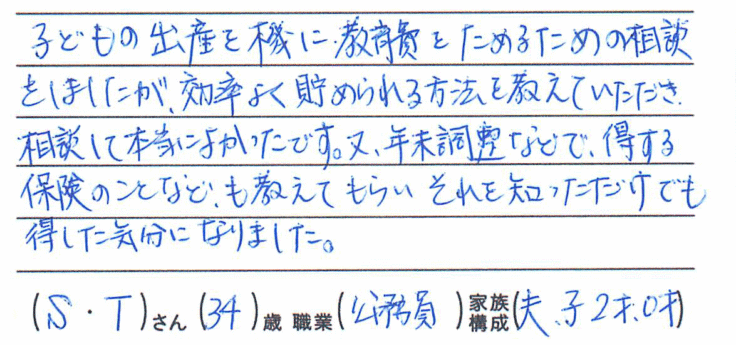 子どもの出産を機に、教育費をためるための相談
をしましたが、効率よく貯められる方法を教えていただき、
相談して本当によかったです。又、年末調整などで、得する
保険のことなど、も教えてもらい それを知っただけでも
得した気分になりました。
(S・T)さん (34)歳 職業(公務員)家族構成(夫、子2才、0才)